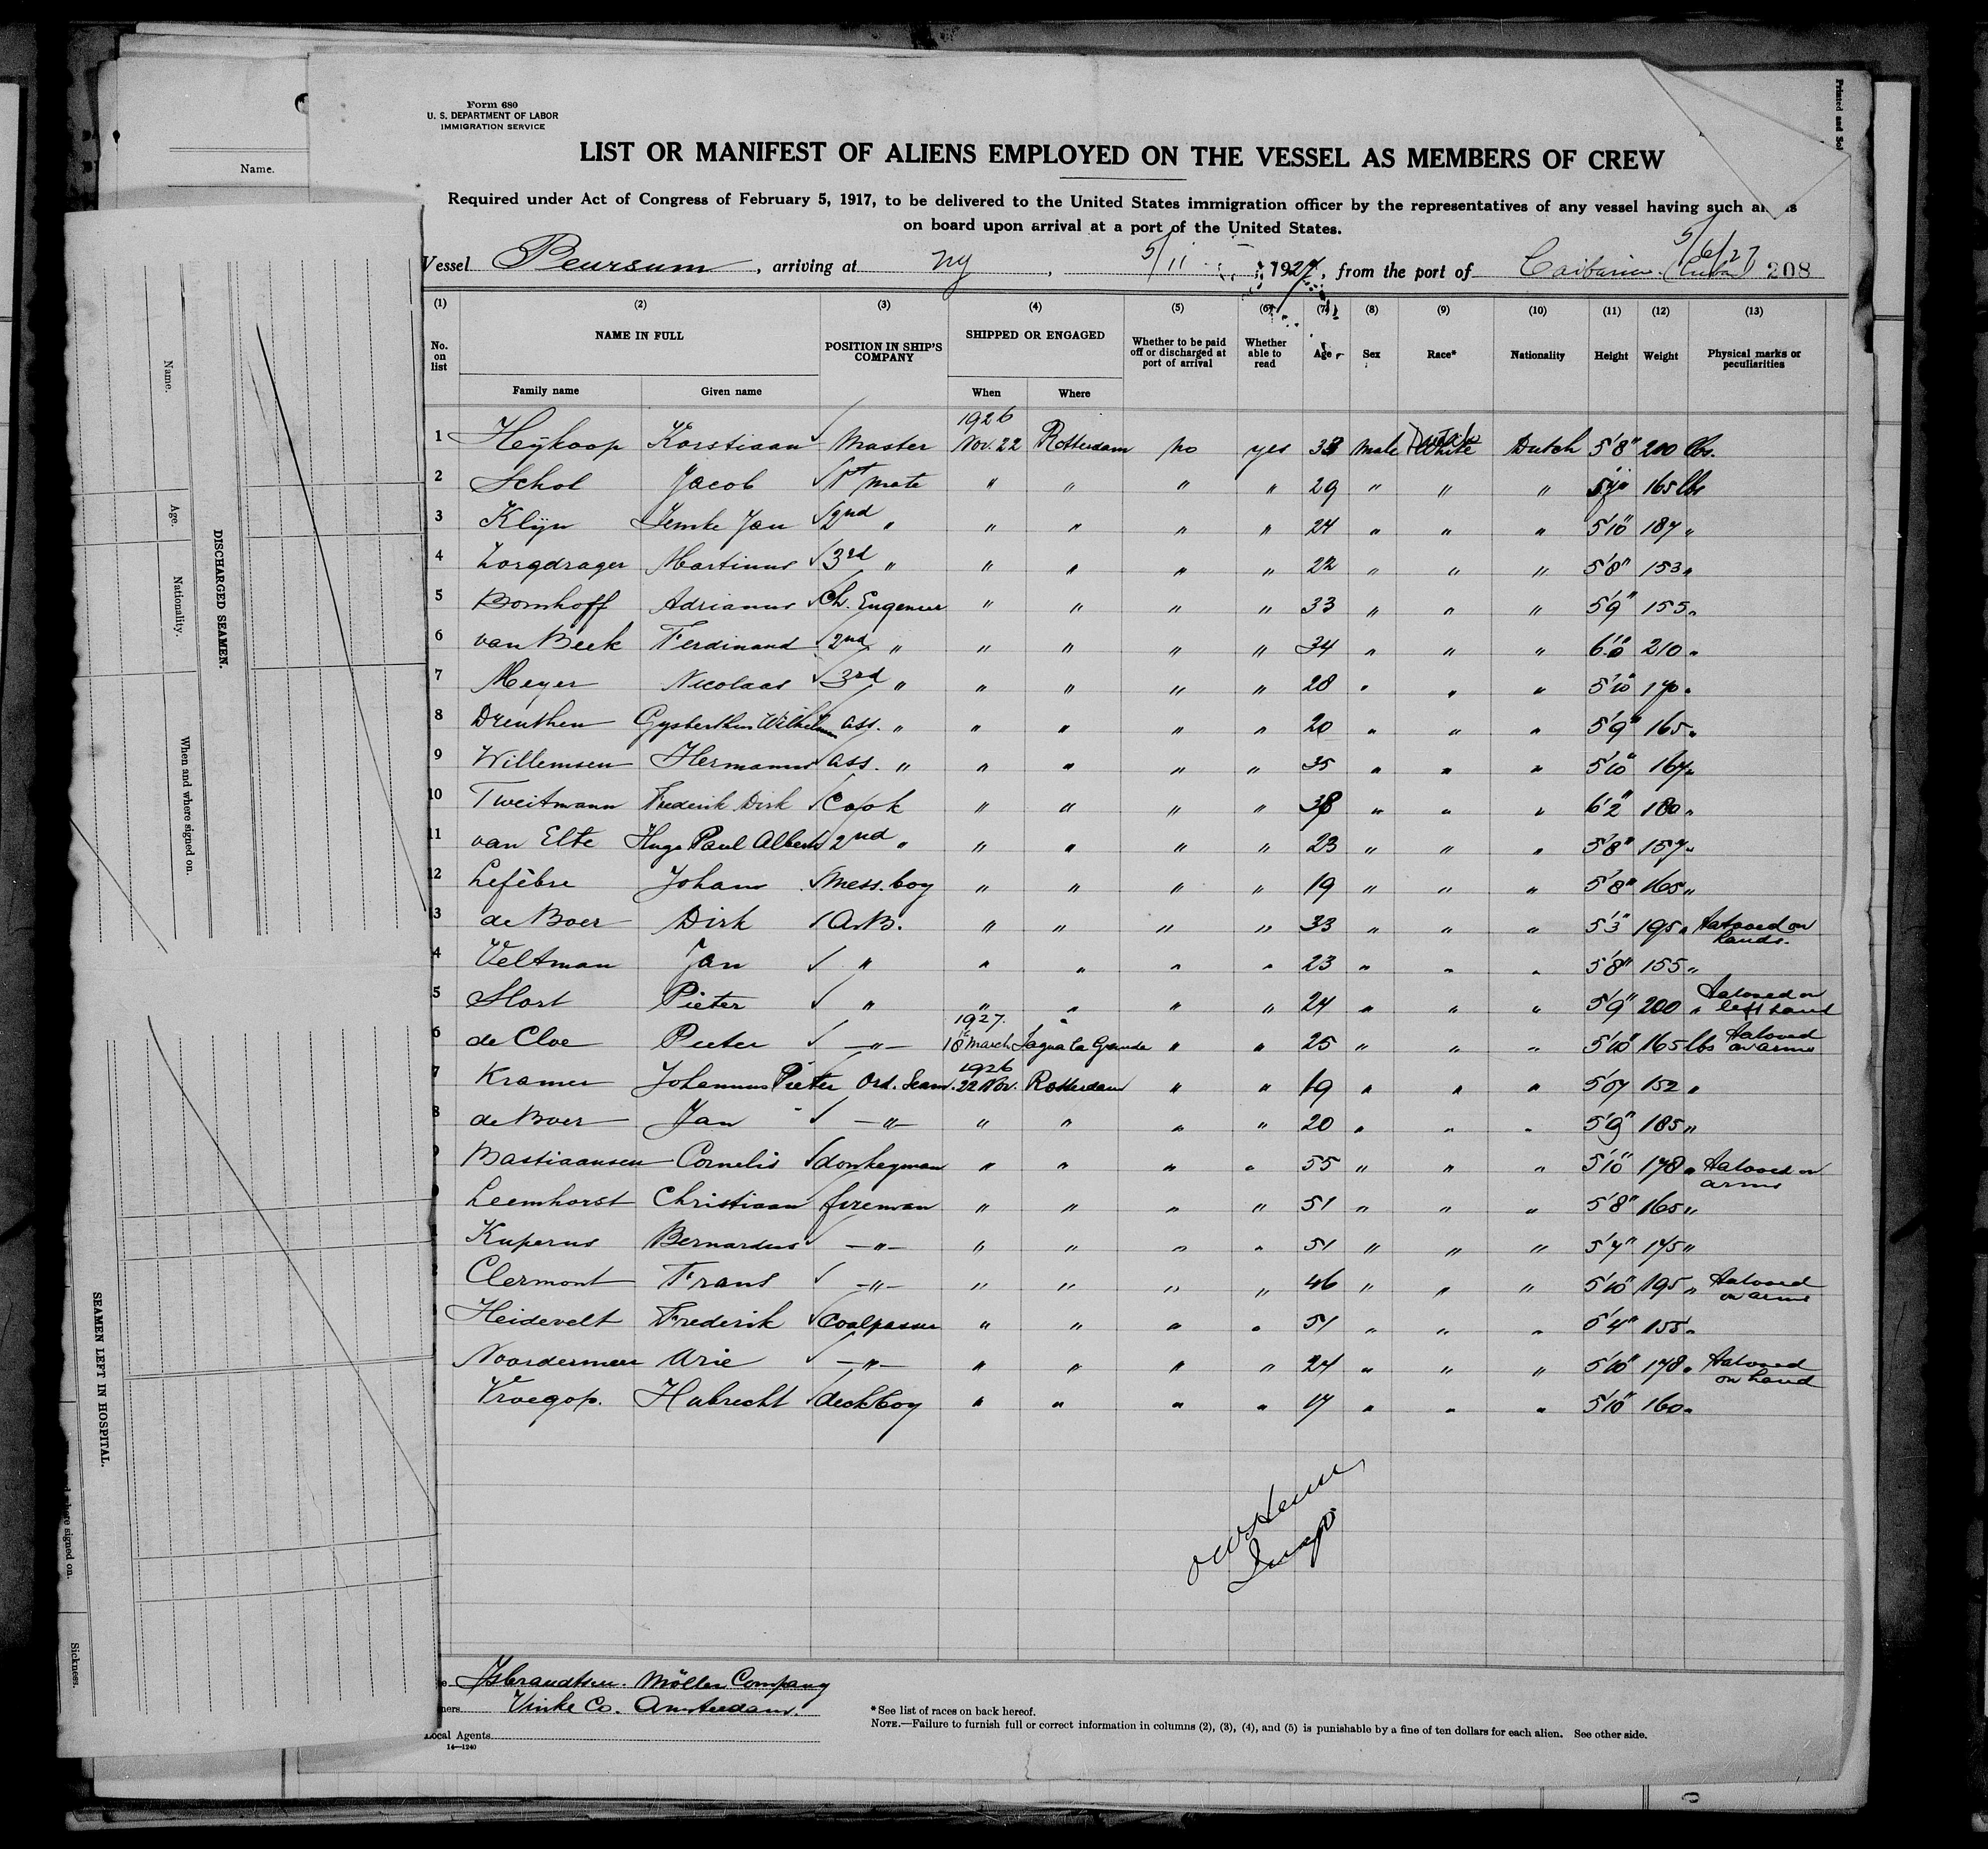 Form 680
U. S. DEPARTMENT OF LABOR
IMMIGRATION SERVICE
LIST OR MANIFEST OF ALIENS EMPLOYED ON THE VESSEL AS MEMBERS OF CREW
Required under Act of Congress of February 5, 1917, to be delivered to the United States immigration officer by the representatives of any vessel having such
on board upon arrival at a port of the United States.
Vessel Beursum, arriving at NY, 5/11 1927, from the port of Caibarien (Cuba) 5/6/27 208
(1) (2) (3) (4) (5) (6) (7) (8) (9) (10) (11) (12) (13)
No. on list NAME IN FULL POSITION IN SHIP'S COMPANY SHIPPED OR ENGAGED Whether to be paid off or discharged at port of arrival Whether able to read Age Sex Race* Nationality Height Weight Physical marks or peculiarities
Family name Given name When Where
1 Heÿkoop Korstiaan Master 1926 Nov. 22 Rotterdam no yes 38 male Dutch White Dutch 5'8" 200 lbs.
2 Schol Jacob 1st mate " " " " 29 " " " 165 lbs
3 Klÿn Jan 2nd " " " " " 24 " " " 5'10" 187 "
4 Zorgdrager Martinus 3rd " " " " " 22 " " " 5'8" 153 "
5 Bomhoff Adrianus Ch. Engeneer " " " " 33 " " " 5'9" 155 "
6 van Beek Ferdinand 2nd " " " " " 34 " " " 6'0" 210 "
7 Meyer Nicolaas 3rd " " " " " 28 " " " 5'10" 170 "
8 Drenthen Gysberthus Wilhelmus ass. " " " " " 20 " " " 5'9" 165 "
9 Willemsen Hermanus ass. " " " " " 35 " " " 5'10" 167 "
10 Tweitmann Frederik Dirk Cook " " " " 38 " " " 6'2" 180 "
11 van Elte Hugo Paul Albert 2nd " " " " " 23 " " " 5'8" 157 "
12 Lefèbre Johan Mess. boy " " " " 19 " " " 5'8" 165 "
3 de Boer Dirk A.B. " " " " 33 " " " 5'3" 195 " tatooed on hands.
4 Veltman Jan " " " " " 23 " " " 5'8" 155 "
5 Slort Pieter " " " " " 24 " " " 5'9" 200 " tatooed on left hand
6 de Cloe Pieter " 1927. 18 March Sagua la Grande " " 25 " " " 5'10" 165 lbs tatooed on arms
7 Kramer Johannus Pieter Ord. Seam. 1926 22 Nov. Rotterdam " " 19 " " " 5'07 152 "
8 de Boer Jan " " " " " 20 " " " 5'9" 185 "
Bastiaansen Cornelis donkeyman " " " " 55 " " " 5'10" 178 " tatooed on arms
Leemhorst Christiaan fireman " " " " 51 " " " 5'8" 165 "
Kuperus Bernardus " " " " " 51 " " " 5'7" 175 "
Clermont Frans " " " " " 46 " " " 5'10" 195 " tatooed on arms
Heidevelt Frederik Coalpasser " " " " 51 " " " 155 "
Noordermeer Arie " " " " " 24 " " " 5'10" 178 " tatooed on hand
Kroegop. Hubrecht deckboy " " " " 17 " " " 5'10" 160 "
Insp
Isbrandtsen. Möller Company
Vinke Co. Amsterdam.
Local Agents
14—1240
*See list of races on back hereof.
NOTE.—Failure to furnish full or correct information in columns (2), (3), (4), and (5) is punishable by a fine of ten dollars for each alien. See other side.
Name.
Name. Age. Nationality. When and where signed on.
DISCHARGED SEAMEN.
SEAMEN LEFT IN HOSPITAL.
where signed on. Sickness.
Printed and